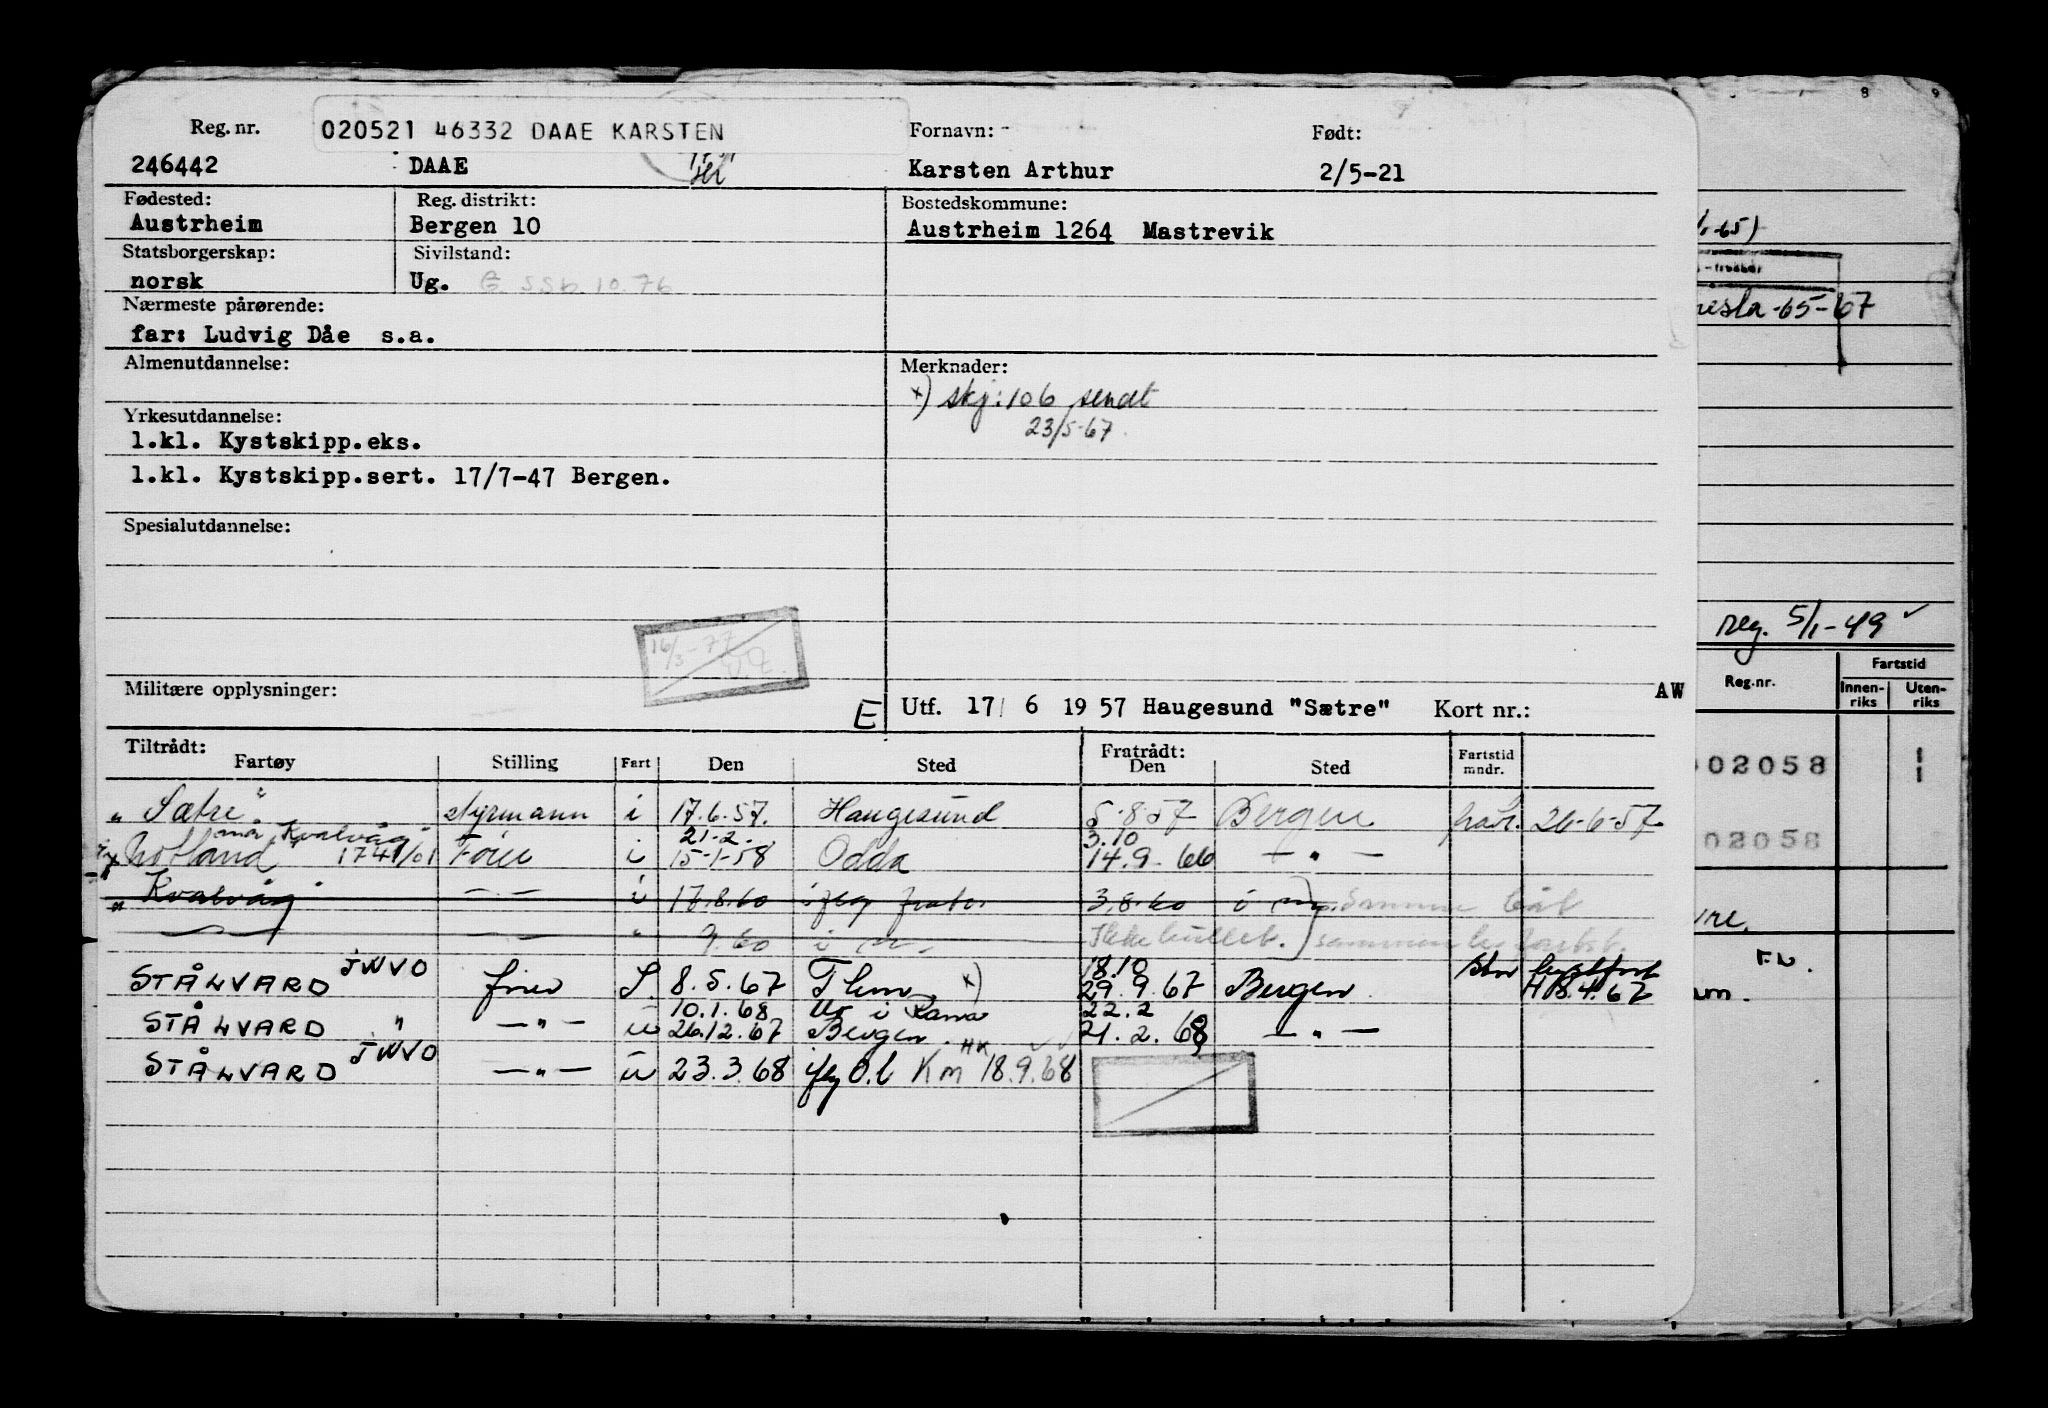 Reg. nr. 020521 46332 DAAE KARSTEN Fornavn: Født:
246442 DAAE Karsten Arthur 2/5-21
Fødested: Reg. distrikt: Bostedskommune:
Austrheim Bergen 10 Austrheim 1264 Mastrevik
Statsborgerskap: Sivilstand:
norsk Ug. G. SSb. 10.76
Nærmeste pårørende:
far: Ludvig Dåe s.a.
Almenutdannelse: Merknader:
x) skj: 106 sendt
23/5-67
Yrkesutdannelse:
1.kl. Kystskipp.eks.
1.kl. Kystskipp.sert. 17/7-47 Bergen.
Spesialutdannelse:
16/3-77
Militære opplysninger:
E Utf. 17/ 6 1957 Haugesund "Sætre" Kort nr.: AW
Tiltrådt: Fratrådt:
Fartøy Stilling Fart Den Sted Den Sted Fartstid mndr.
"Sætre" styrmann i 17.6.57. Haugesund 5.8.57 Bergen 26-6-57
21-2. 3.10
Kvalvåg
15-1-58 Odda 14.9.66 — " —
Kvalvåg — " — i 17.8.60 3.8.60 i samme båt
9.60 i Ikke hullet.
STÅLVARD JWVO S. 8.5.67 x) 18.10 29.9.67 Bergen
STÅLVARD " — " — u 10.1.68 26.12.67 Bergen 22.2 21.2.68 — " —
STÅLVARD JWVO — " — u 23.3.68 HK Km 18.9.68
8 9
-65)
-65-67
reg. 5/1-49
Reg.nr. Fartstid
Innenriks Utenriks
02058
02058